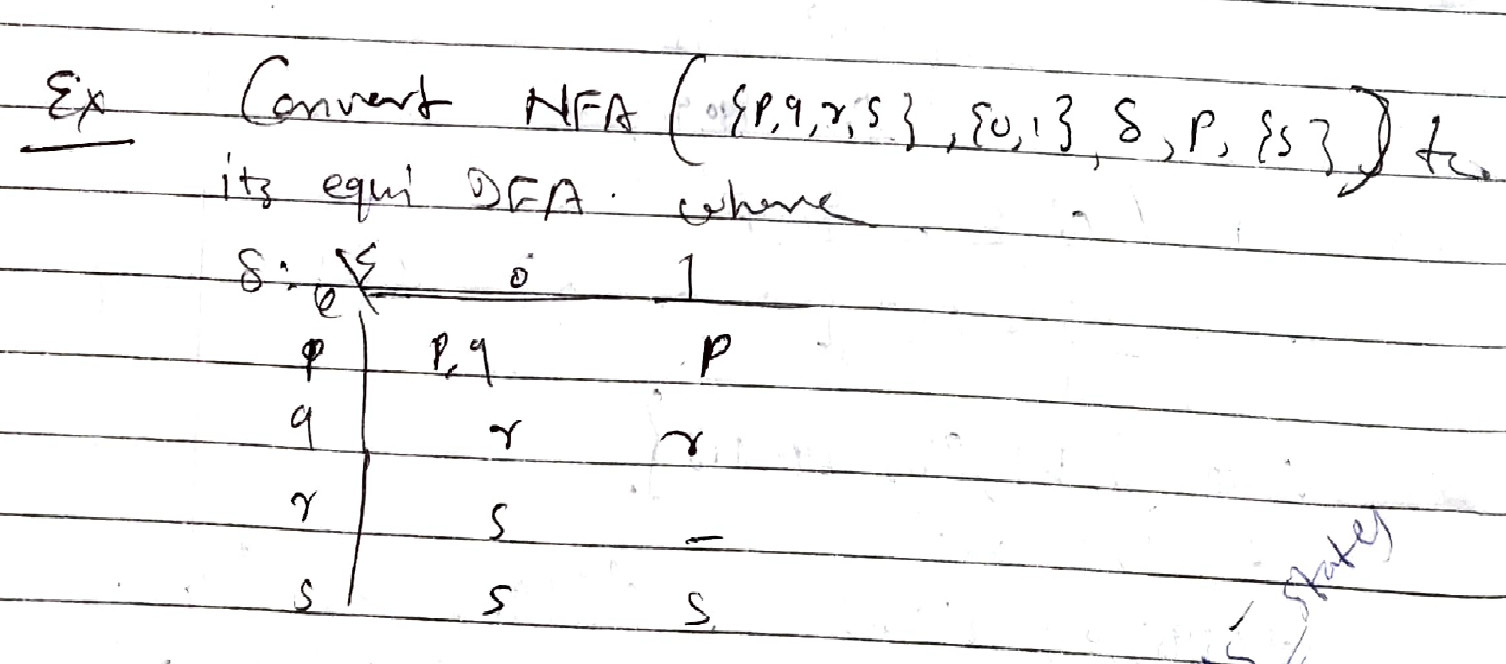 Ex Convert NFA ({p,q,r,s}, {0,1}, δ, p, {s}) to
its equi DFA. where
δ: Q\Σ 0 1
p p,q p
q r r
r s –
s s s
states